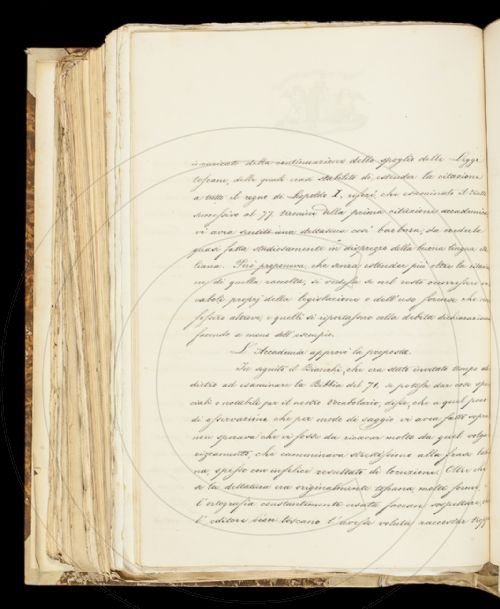 incaricato della continuazione dello spoglio delle Leggi
toscane, delle quali erasi stabilito di estender la citazione
a tutto il regno di Leopoldo I, riferì, che esaminato il
successivo al 77. termine della prima citazione accademica
vi avea sentito una dettatura così barbara, da crederla
quasi fatta studiosamente in disprezzo della buona lingua
liana. Però proponeva che senza estender più oltre la
di quella raccolta, si vedesse se nel resto occorressero
caboli proprj della legislazione e dell'uso forense che
fossero altrove, e quelli si riportassero colla debita dichiarazione
facendo a meno dell'esempio.
L'Accademia approvò la proposta.
In seguito il Bianchi, che era stato invitato tempo
dietro ad esaminare la Bibbia del 71, se potesse dar cose
ciali e notabili per il nostro Vocabolario, disse, che a quel
di osservazioni che per modo di saggio vi avea fatto
non sperava che vi fosse da ricavar molto da quel
rizzamento, che camminava strettissimo alla frase
na, spesso con infelice resultato di locuzioni. Oltre
se la dettatura era originalmente toscana, molte forme
l'ortografia constantemente usata facean sospettare,
l'editore non toscano l'avesse voluta raccostar